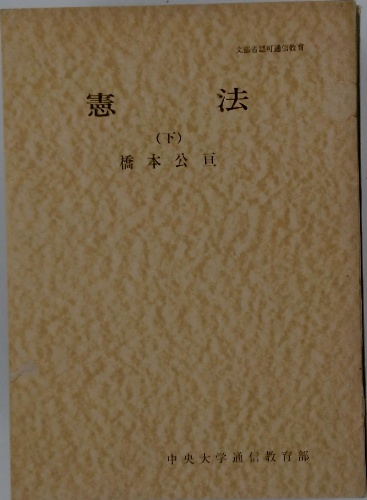 文部省認可通信教育
憲法
(下)
橋本公亘
中央大学通信教育部